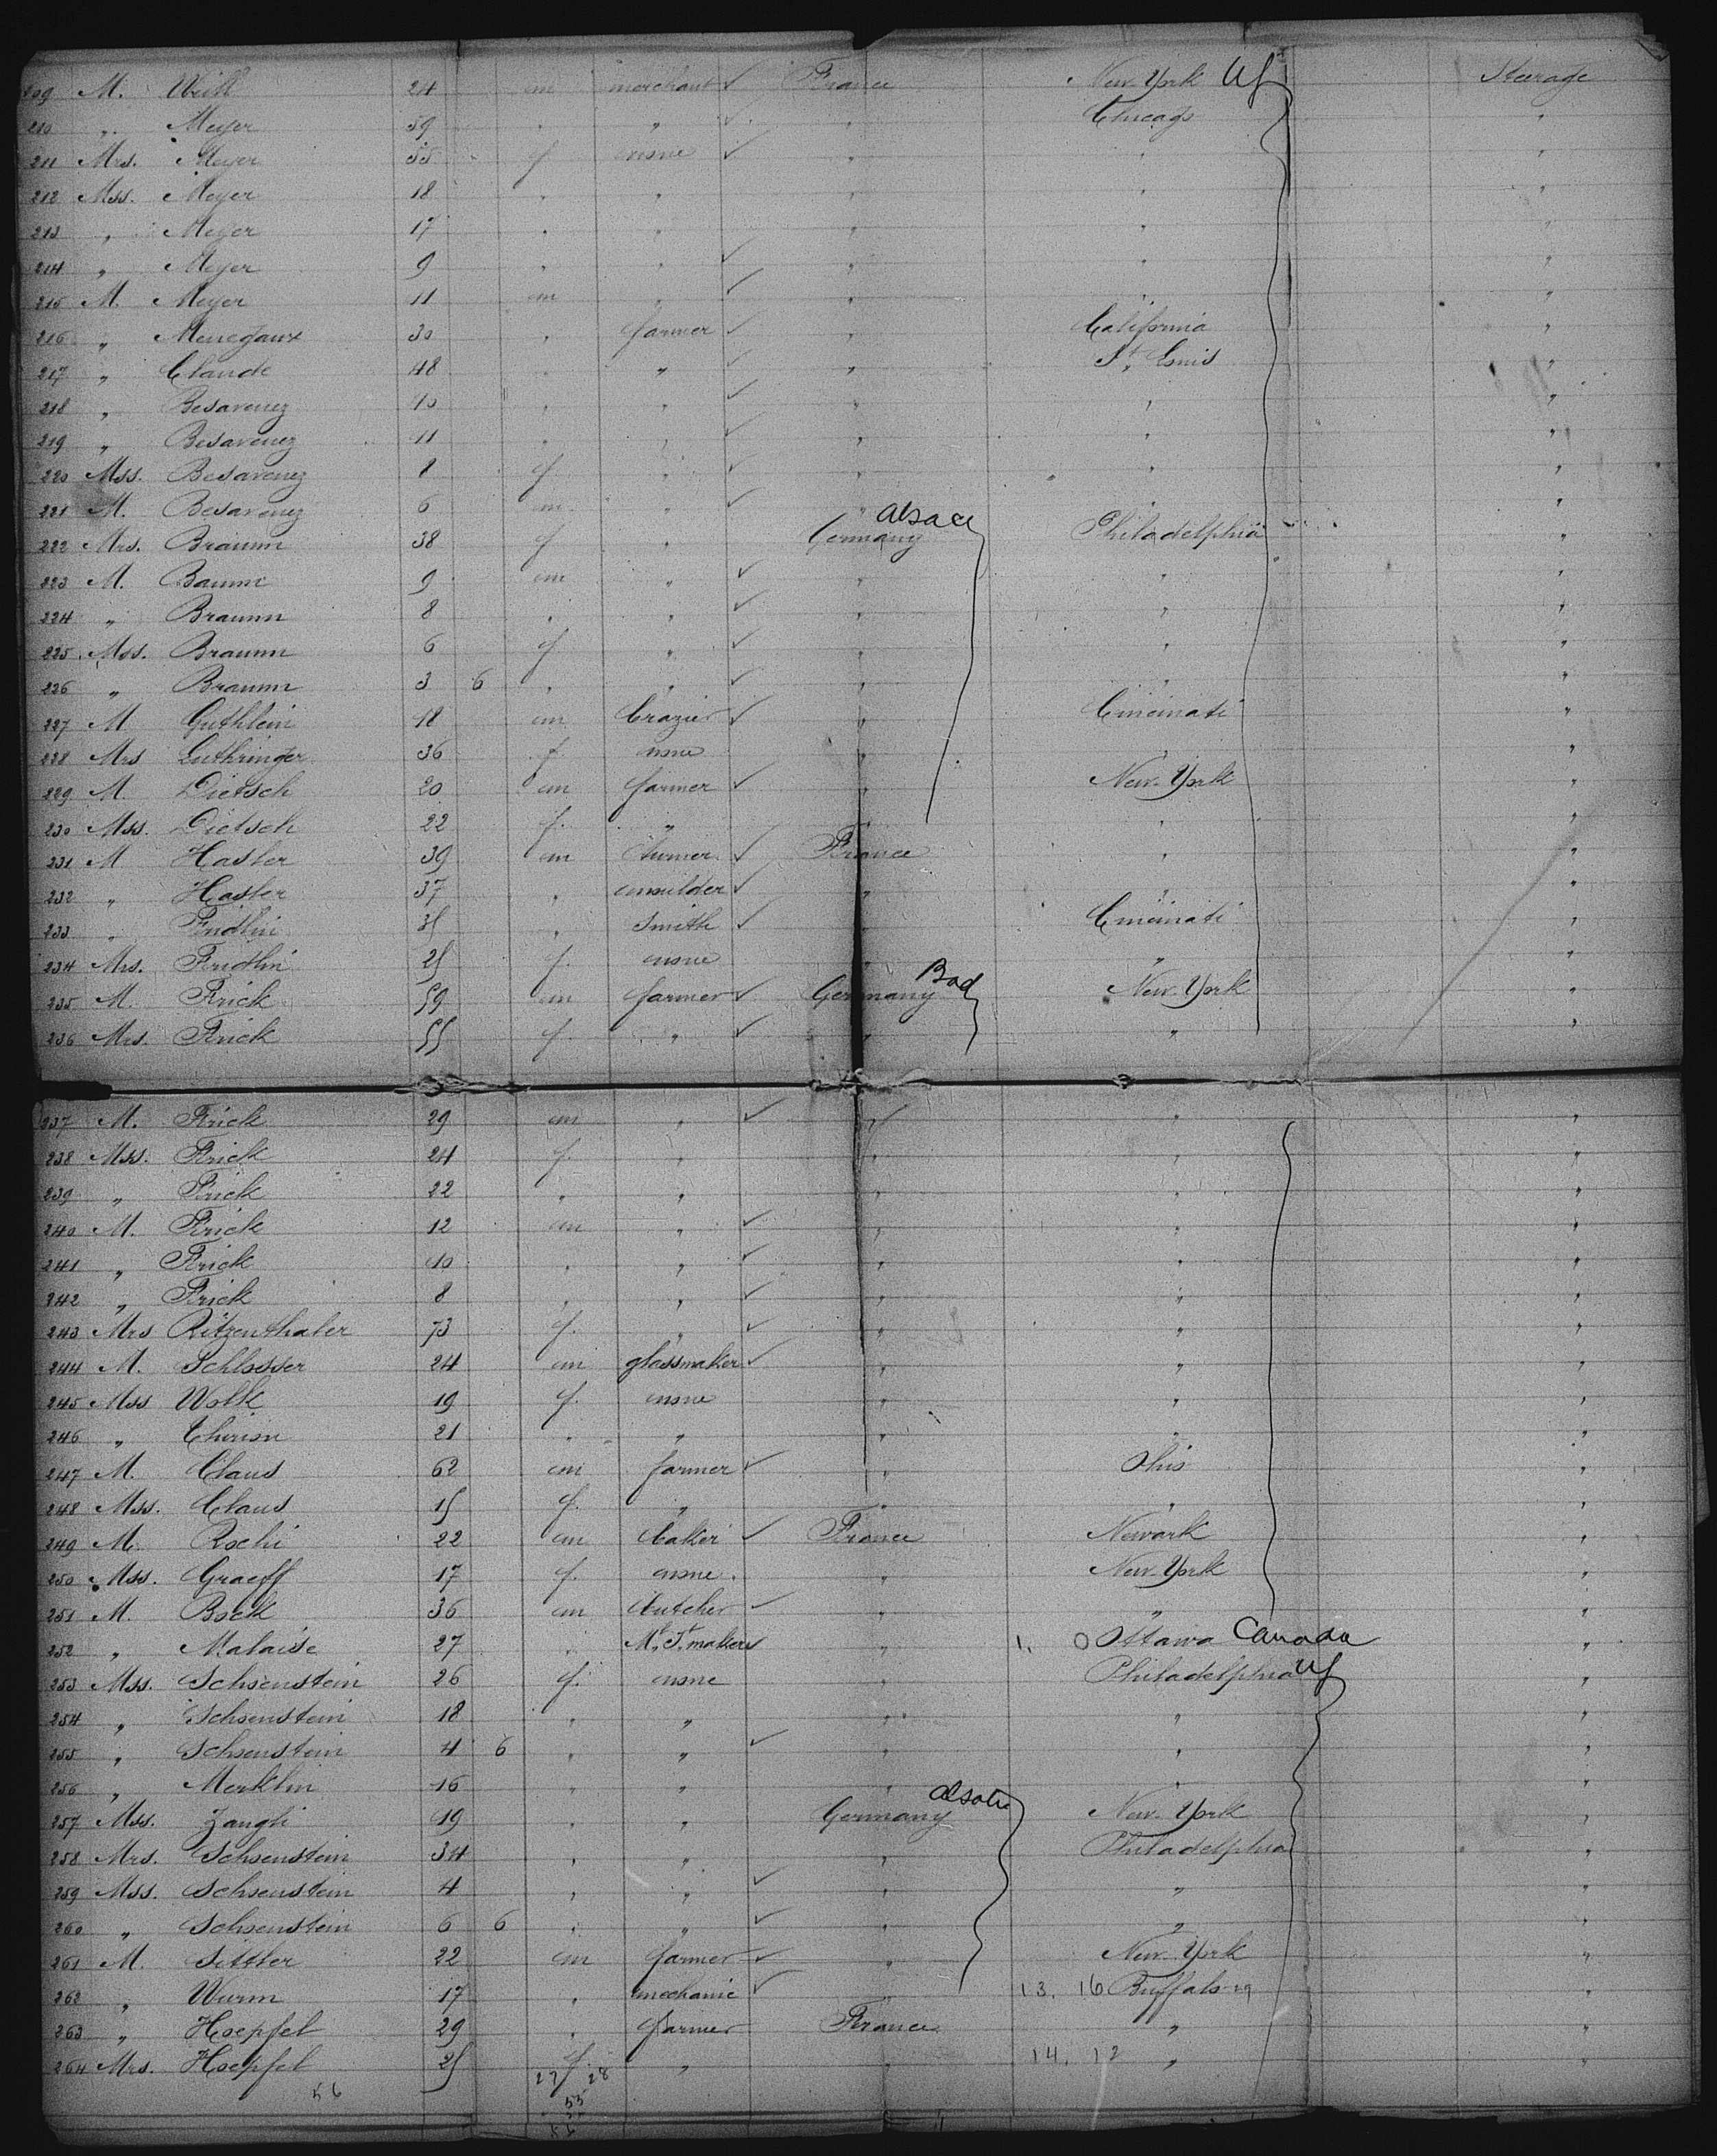 209 M. Weill 24 m merchant ✓ France New York US Steerage
210 „ Meyer 59 „ „ ✓ „ Chicago „
211 Mrs. Meyer 55 f none ✓ „ „ „
212 Mss. Meyer 18 „ „ „ „ „
213 „ Meyer 17 „ „ „ „ „
214 „ Meyer 9 „ „ ✓ „ „ „
215 M. Meyer 11 m „ ✓ „ „ „
216 „ Menegaux 30 „ farmer ✓ „ California „
217 „ Claude 48 „ „ ✓ „ St. Louis „
218 „ Besavenez 10 „ „ ✓ „ „ „
219 „ Besavenez 11 „ „ ✓ „ „ „
220 Mss. Besavenez 8 f „ ✓ „ „ „
221 M. Besavenez 6 m „ ✓ „ „ „
222 Mrs. Braunn 38 f „ Germany Alsace Philadelphia „
223 M. Baunn 9 m „ ✓ „ „ „
224 „ Braunn 8 „ „ ✓ „ „ „
225 Mss. Braunn 6 f „ ✓ „ „ „
226 „ Braunn 3 6 „ „ ✓ „ „ „
227 M Guthlein 18 m brazier ✓ „ Cincinati „
228 Mrs Luthringer 36 f none „ „ „
229 M. Dietsch 20 m farmer ✓ „ New York „
230 Mss. Dietsch 22 f. „ „ „ „
231 M Hasler 39 m ✓ France „ „
232 „ Hasler 37 „ moulder ✓ „ „ „
233 „ Fridlin 35 „ Smith ✓ „ Cincinati „
234 Mrs. Fridlin 25 f. none „ „ „
235 M. Frick 59 m farmer ✓ Germany Bad New York „
236 Mrs. Frick 55 f. „ ✓ „ „ „
237 M. Frick 29 m „ ✓ „ „ „
238 Mss. Frick 24 f. „ „ „ „
239 „ Frick 22 „ „ „ „ „
240 M. Frick 12 m „ ✓ „ „ „
241 „ Frick 10 „ „ ✓ „ „ „
242 „ Frick 8 „ „ ✓ „ „ „
243 Mrs Ritzenthaler 73 f. „ ✓ „ „ „
244 M. Schlosser 24 m glassmaker ✓ „ „ „
245 Mss Wolk 19 f. none „ „ „
246 „ Thirion 21 „ „ „ „ „
247 M. Claus 62 m farmer ✓ „ Ohio „
248 Mss. Claus 15 f. „ „ „ „
249 M. Rochi 22 m baker ✓ France Newark „
250 Mss. Graeff 17 f. none. „ New York „
251 M. Bock 36 m butcher ✓ „ „ „
252 „ Malaise 27 „ maker ✓ „ 1. 0 Ottawa Canada „
253 Mss. Schoenstein 26 f. none „ Philadelphia US „
254 „ Schoenstein 18 „ „ „ „ „
255 „ Schoenstein 4 6 „ „ ✓ „ „ „
256 „ Merklin 16 „ „ „ „ „
257 Mss. Zangli 19 „ „ Germany New York „
258 Mrs. Schoenstein 34 „ „ „ Philadelphia „
259 Mss. Schoenstein 4 „ „ ✓ „ „ „
260 „ Schoenstein 6 6 „ „ ✓ „ „ „
261 M. Sittler 22 m farmer ✓ „ New York „
262 „ Wurm 17 „ mechanic ✓ „ 13. 16 Buffalo „
263 „ Hoepfel 29 „ farmer France „ „
264 Mrs. Hoepfel 25 f „ „ 14. 12 „ „
56 27 28
55
56